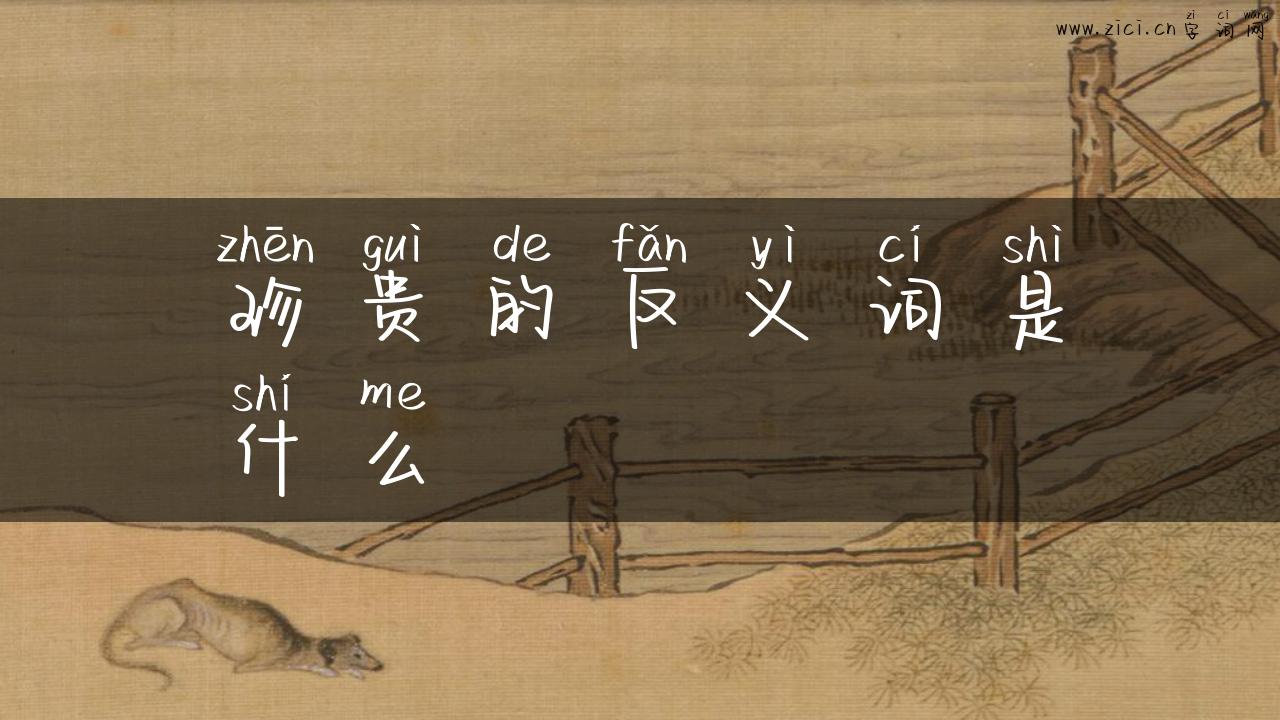 zì cí wǎng
www.zici.cn 字词网
zhēn guì de fǎn yì cí shì
珍贵的反义词是
shí me
什么